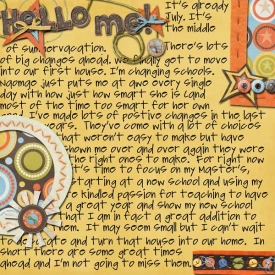 Hello me!
It's already
July. It's
the middle
of summer vacation. There's lots
of big changes ahead. we finally get to move
into our first house. I'm changing schools.
Ngomge just puts me at awe every single
day with how just how smart she is (and
most of the time too smart for her own
good. I've made lots of postive changes in the last
years. They've come with a lot of choices
that weren't easy to make but have
shown me over and over again they were
the right ones to make. For right now
it's time to focus on my Master's,
starting at a new school and using my
kindled passion for teaching to have
a great year and show my new school
that I am in fact a great addition to
them. It may seem small but I can't wait
to decorate and turn that house into our home. In
short there are some great times
ahead and I'm not going to miss them.